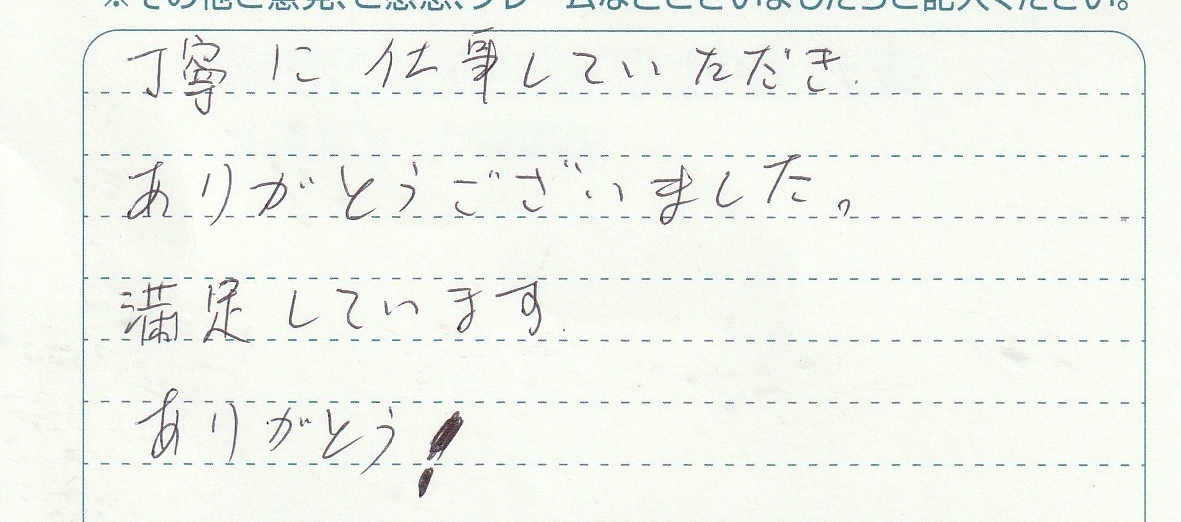 ※その他ご意見、ご感想、クレームなどございましたらご記入ください。
丁寧に仕事していただき.
ありがとうございました。
満足しています.
ありがとう!